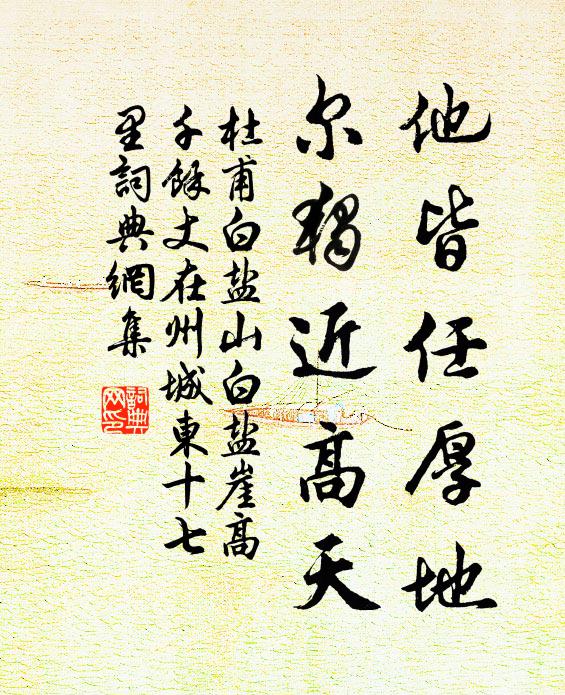 他皆任厚地
尔獨近高天
杜甫白盐山白盐崖高
千餘丈在州城東十七
里詞典網集
詞典
网印